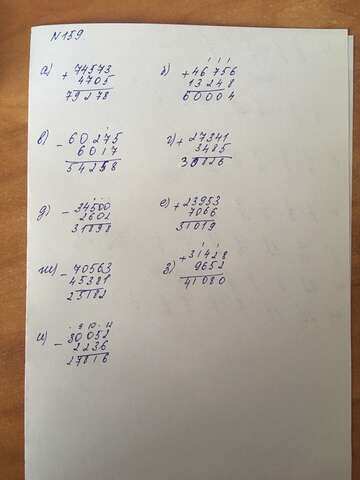 N159
а) + 74573
4705
79278
б) + 46756
13248
60004
в) - 60275
6017
54258
г) + 27341
3485
30826
д) - 34500
2602
31898
е) + 23953
7066
31019
ж) - 70563
45381
25182
з) + 31428
9652
41080
и) - 30052
2236
27816